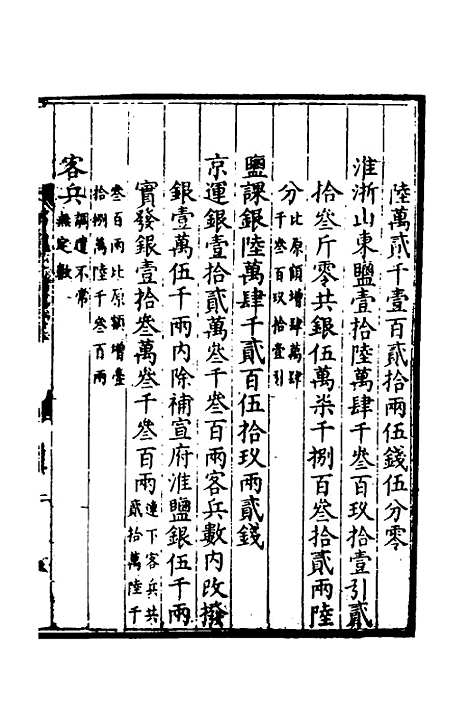 陸萬貳千壹百貳拾兩伍錢伍分零
淮浙山東鹽壹拾陸萬肆千叄百玖拾壹引貳
拾叄斤零共銀伍萬柒千捌百叄拾貳兩陸
分比原額增肆萬肆
千叄百玖拾壹引
鹽課銀陸萬肆千貳百伍拾玖兩貳錢
京運銀壹拾貳萬叄千叄百兩客兵數內改撥
銀壹萬伍千兩內除補宣府淮鹽銀伍千兩
實發銀壹拾叄萬叄千叄百兩連下客兵共
貳拾萬陸千
叄百兩比原額增壹
拾捌萬陸千叄百兩
客兵調遣不常
無定數